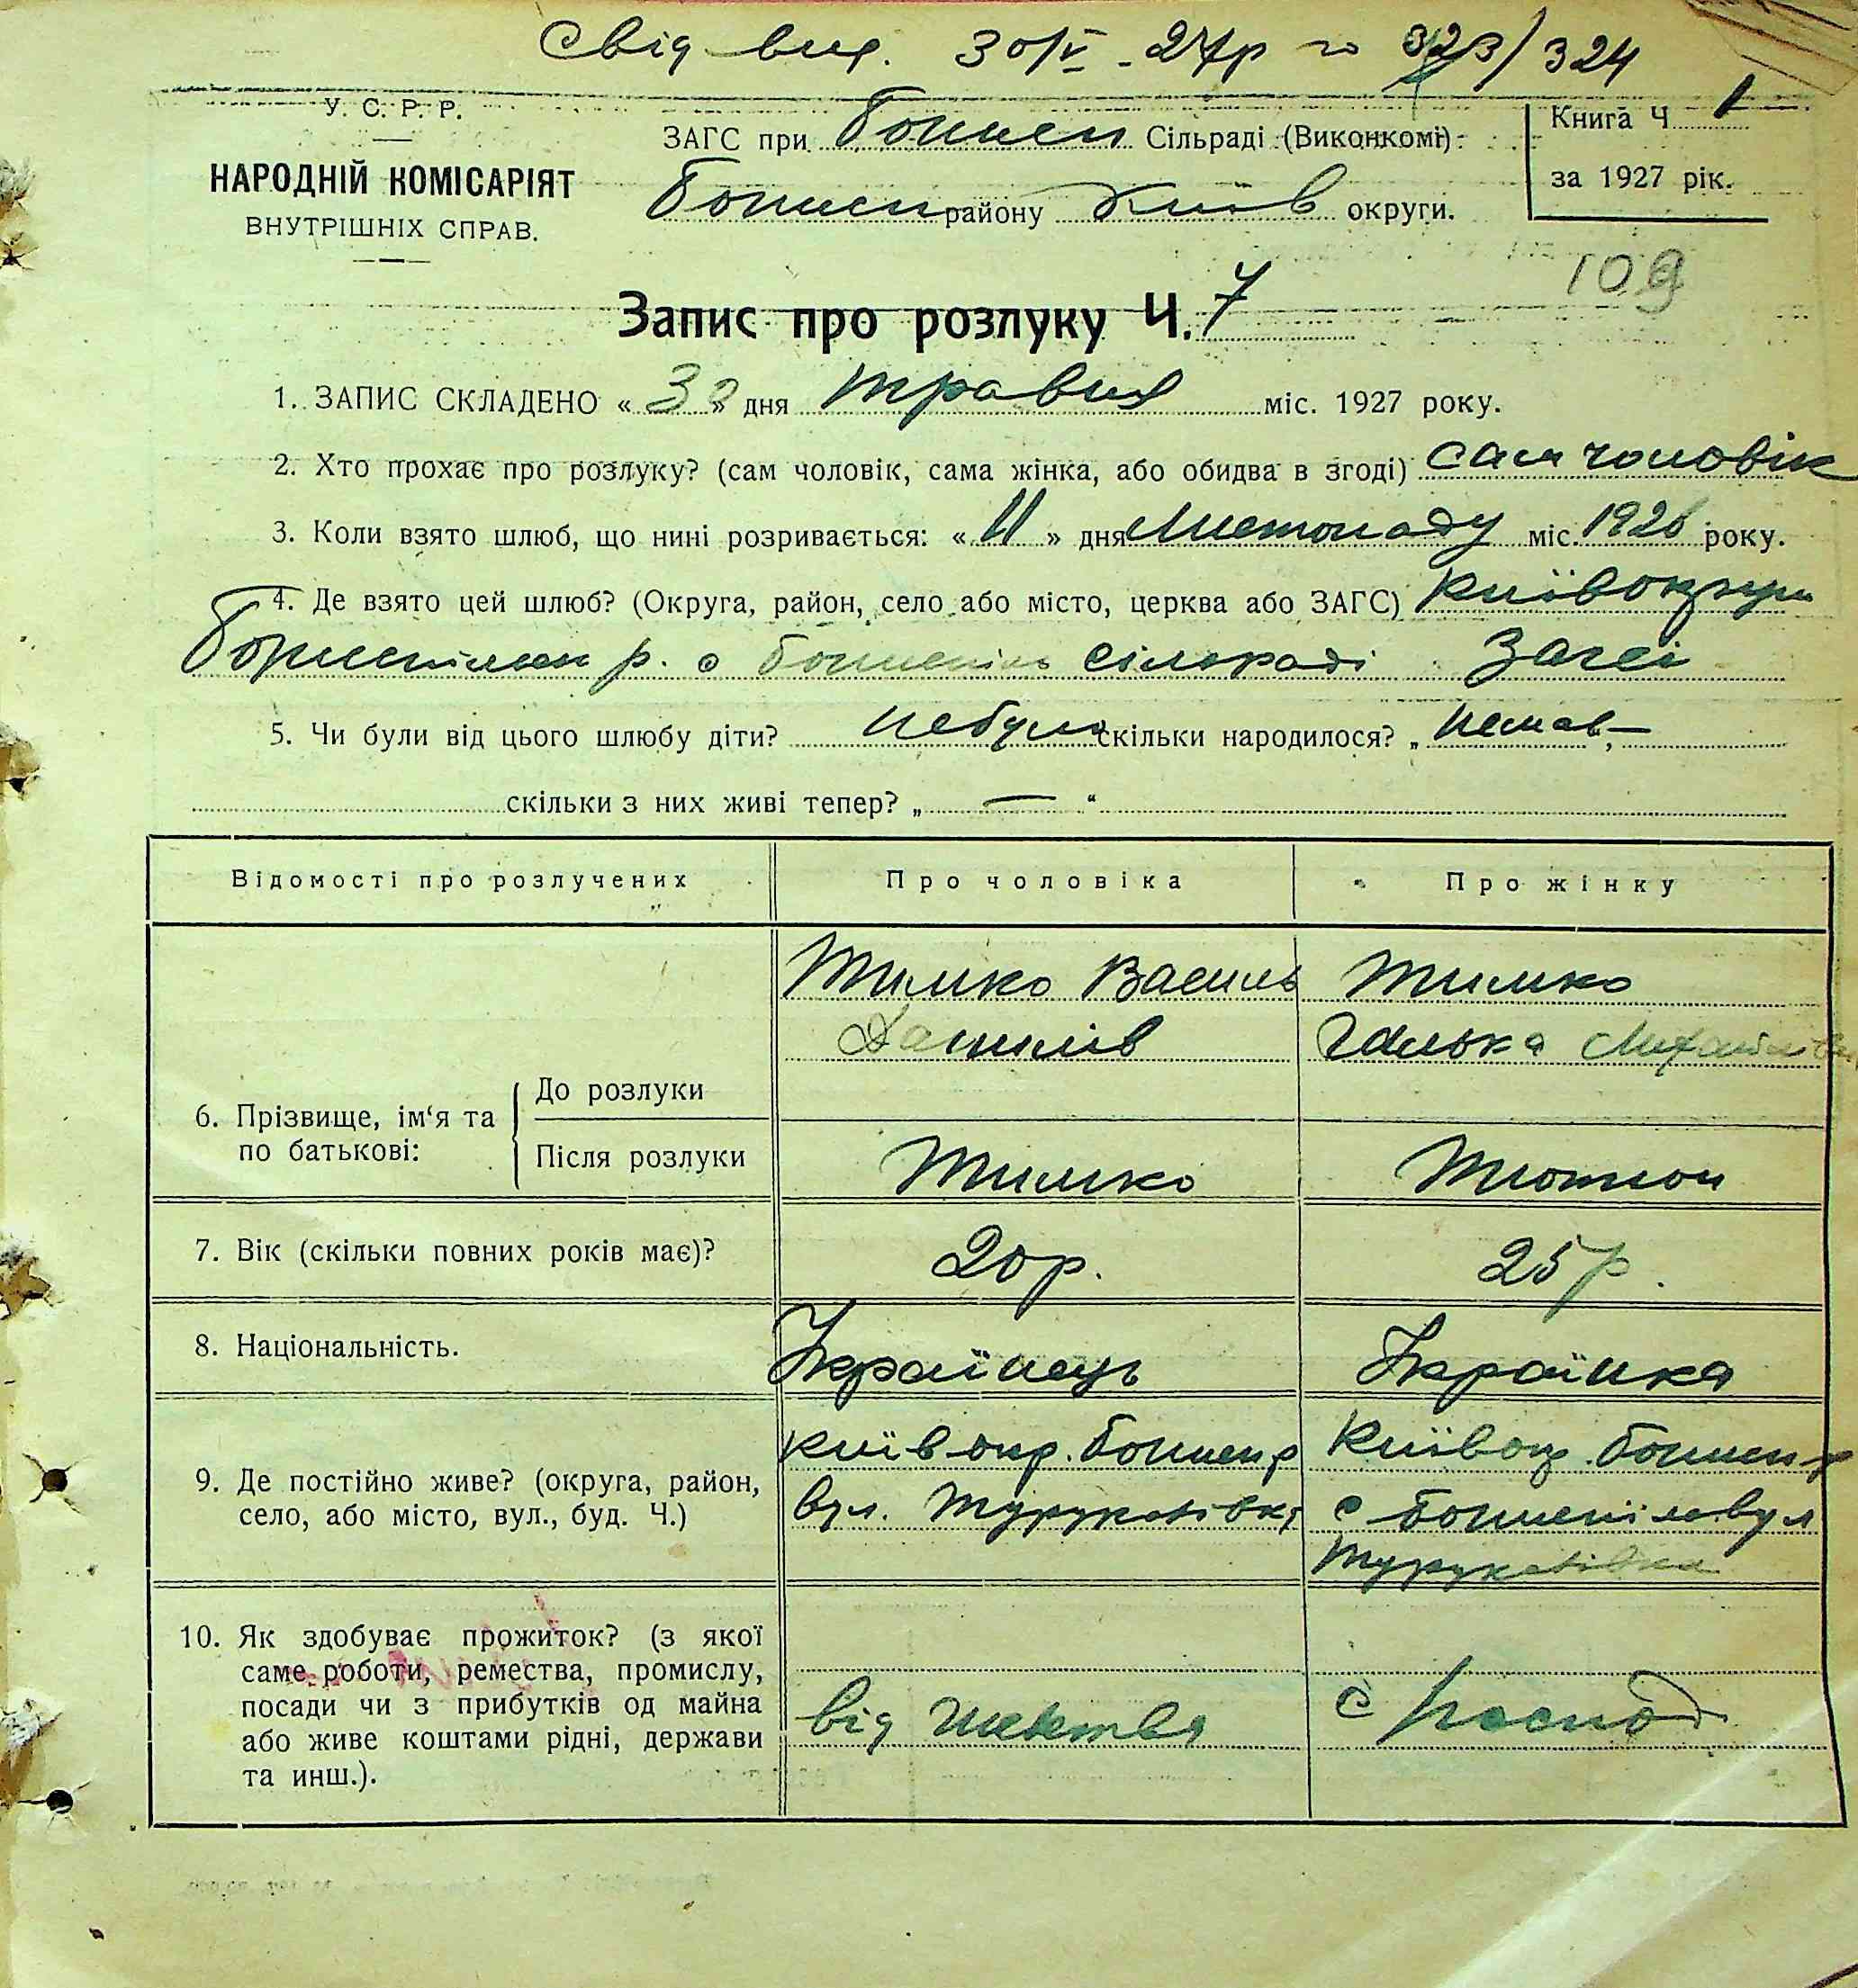 Свід вид. 30/V - 27р го 323/324
У. С. Р. Р.
НАРОДНІЙ КОМІСАРІЯТ
ВНУТРІШНІХ СПРАВ.
ЗАГС при Сільраді (Виконкомі)
району Київ округи.
Книга Ч 1
за 1927 рік.
109
Запис про розлуку Ч. 7
1. ЗАПИС СКЛАДЕНО «30» дня травня міс. 1927 року.
2. Хто прохає про розлуку? (сам чоловік, сама жінка, або обидва в згоді) сам чоловік
3. Коли взято шлюб, що нині розривається: «11» дня Листопаду міс. 1926 року.
4. Де взято цей шлюб? (Округа, район, село або місто, церква або ЗАГС)
р. с сільраді Загсі
5. Чи були від цього шлюбу діти? небуло скільки народилося? „ немає, —
скільки з них живі тепер? „ — “
Відомості про розлучених Про чоловіка Про жінку
6. Прізвище, ім‘я та по батькові:
До розлуки
Тимко Василь
Данилів
Тимко
Галька Михайлівна
Після розлуки Тимко
7. Вік (скільки повних років має)? 20р. 25р.
8. Національність. Українець Українка
9. Де постійно живе? (округа, район,
село, або місто, вул., буд. Ч.)
Київ окр. р
вул.
Київ р
с вул
10. Як здобуває прожиток? (з якої
саме роботи, ремества, промислу,
посади чи з прибутків од майна
або живе коштами рідні, держави
та инш.).
від
с господ